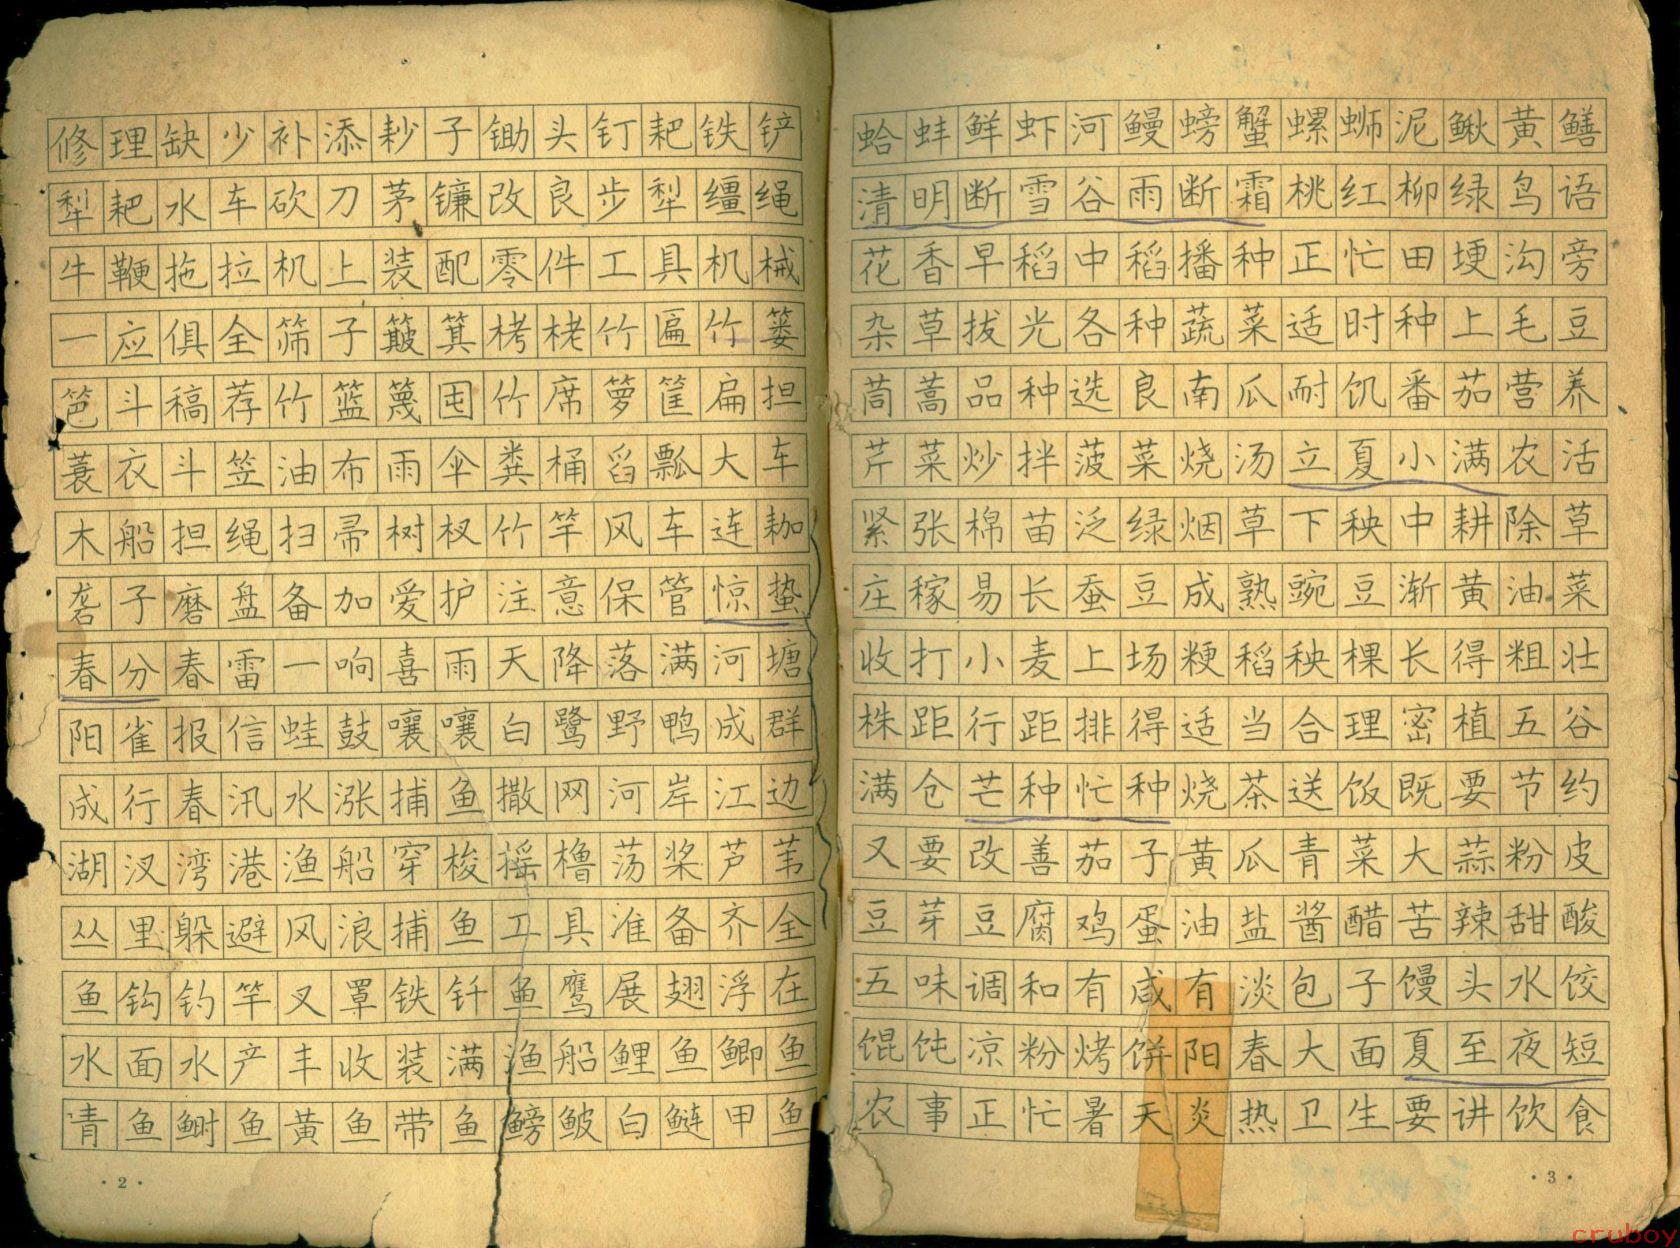 修理缺少补添耖子锄头钉耙铁铲
犁耙水车砍刀茅镰改良步犁缰绳
牛鞭拖拉机上装配零件工具机械
一应俱全筛子簸箕栲栳竹匾竹篓
笆斗稿荐竹篮篾囤竹席箩筐扁担
蓑衣斗笠油布雨伞粪桶舀瓢大车
木船担绳扫帚树杈竹竿风车连耞
砻子磨盘备加爱护注意保管惊蛰
春分春雷一响喜雨天降落满河塘
阳雀报信蛙鼓嚷嚷白鹭野鸭成群
成行春汛水涨捕鱼撒网河岸江边
湖汊湾港渔船穿梭摇橹荡桨芦苇
丛里躲避风浪捕鱼工具准备齐全
鱼钩钓竿叉罩铁钎鱼鹰展翅浮在
水面水产丰收装满渔船鲤鱼鲫鱼
青鱼鲥鱼黄鱼带鱼鳑鲏白鲢甲鱼
· 2 ·
蛤蚌鲜虾河鳗螃蟹螺蛳泥鳅黄鳝
清明断雪谷雨断霜桃红柳绿鸟语
花香早稻中稻播种正忙田埂沟旁
杂草拔光各种蔬菜适时种上毛豆
茼蒿品种选良南瓜耐饥番茄营养
芹菜炒拌菠菜烧汤立夏小满农活
紧张棉苗泛绿烟草下秧中耕除草
庄稼易长蚕豆成熟豌豆渐黄油菜
收打小麦上场粳稻秧棵长得粗壮
株距行距排得适当合理密植五谷
满仓芒种忙种烧茶送饭既要节约
又要改善茄子黄瓜青菜大蒜粉皮
豆芽豆腐鸡蛋油盐酱醋苦辣甜酸
五味调和有咸有淡包子馒头水饺
馄饨凉粉烤饼阳春大面夏至夜短
农事正忙暑天炎热卫生要讲饮食
· 3 ·
cruboy